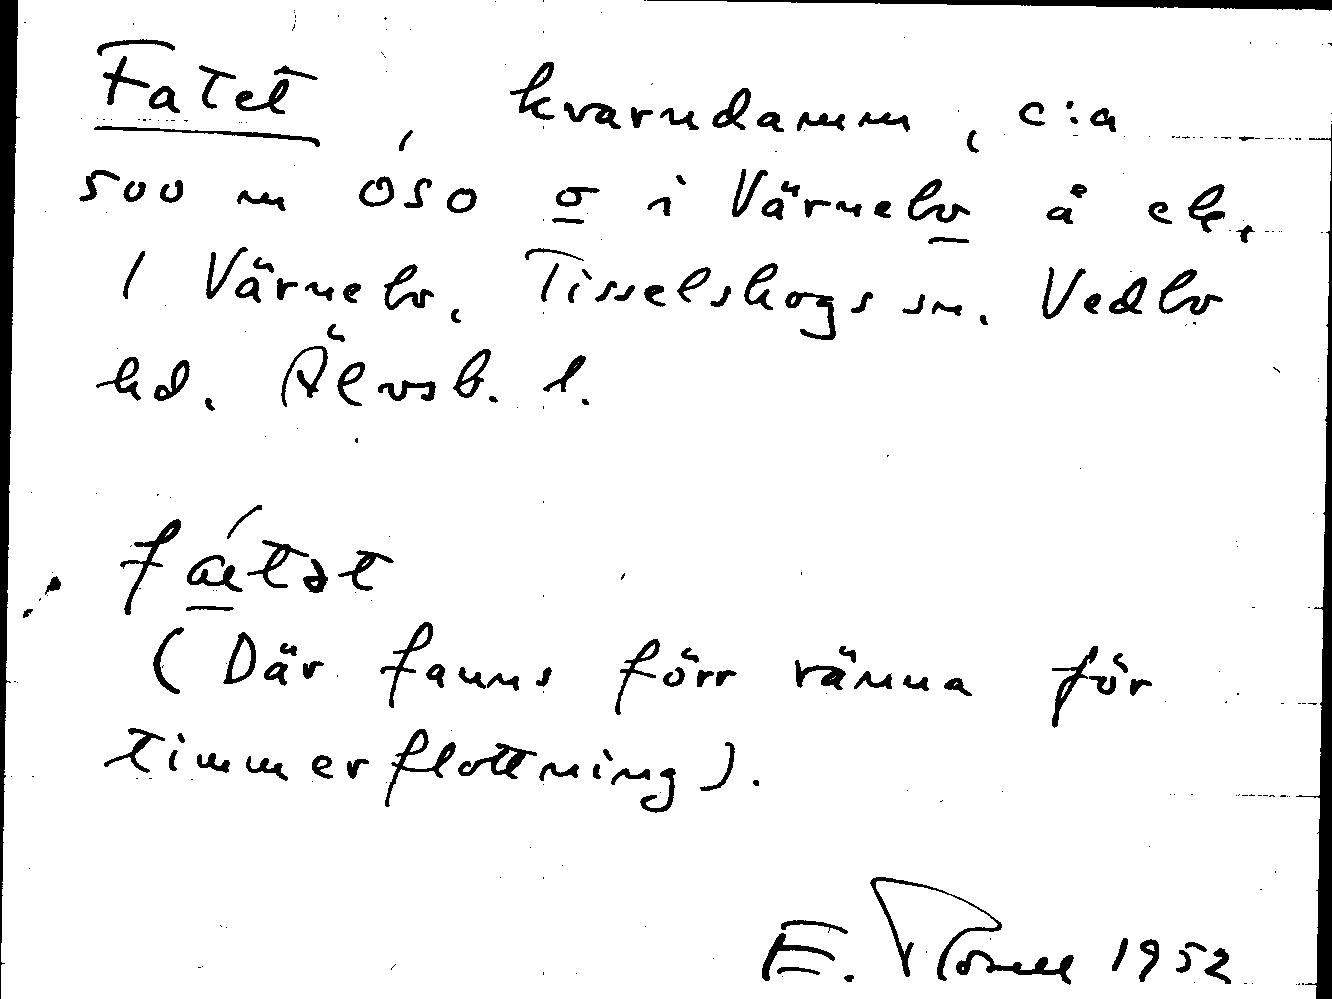 Fatet, kvarndamm, c:a
500 m OSO o i Värnebo å ek.
/ Värnebo, Tisselskogs sn. Vedbo
hd. Älvsb. l.
fáꞇət
(Där fanns förr ränna för
timmerflottning).
E. 1952